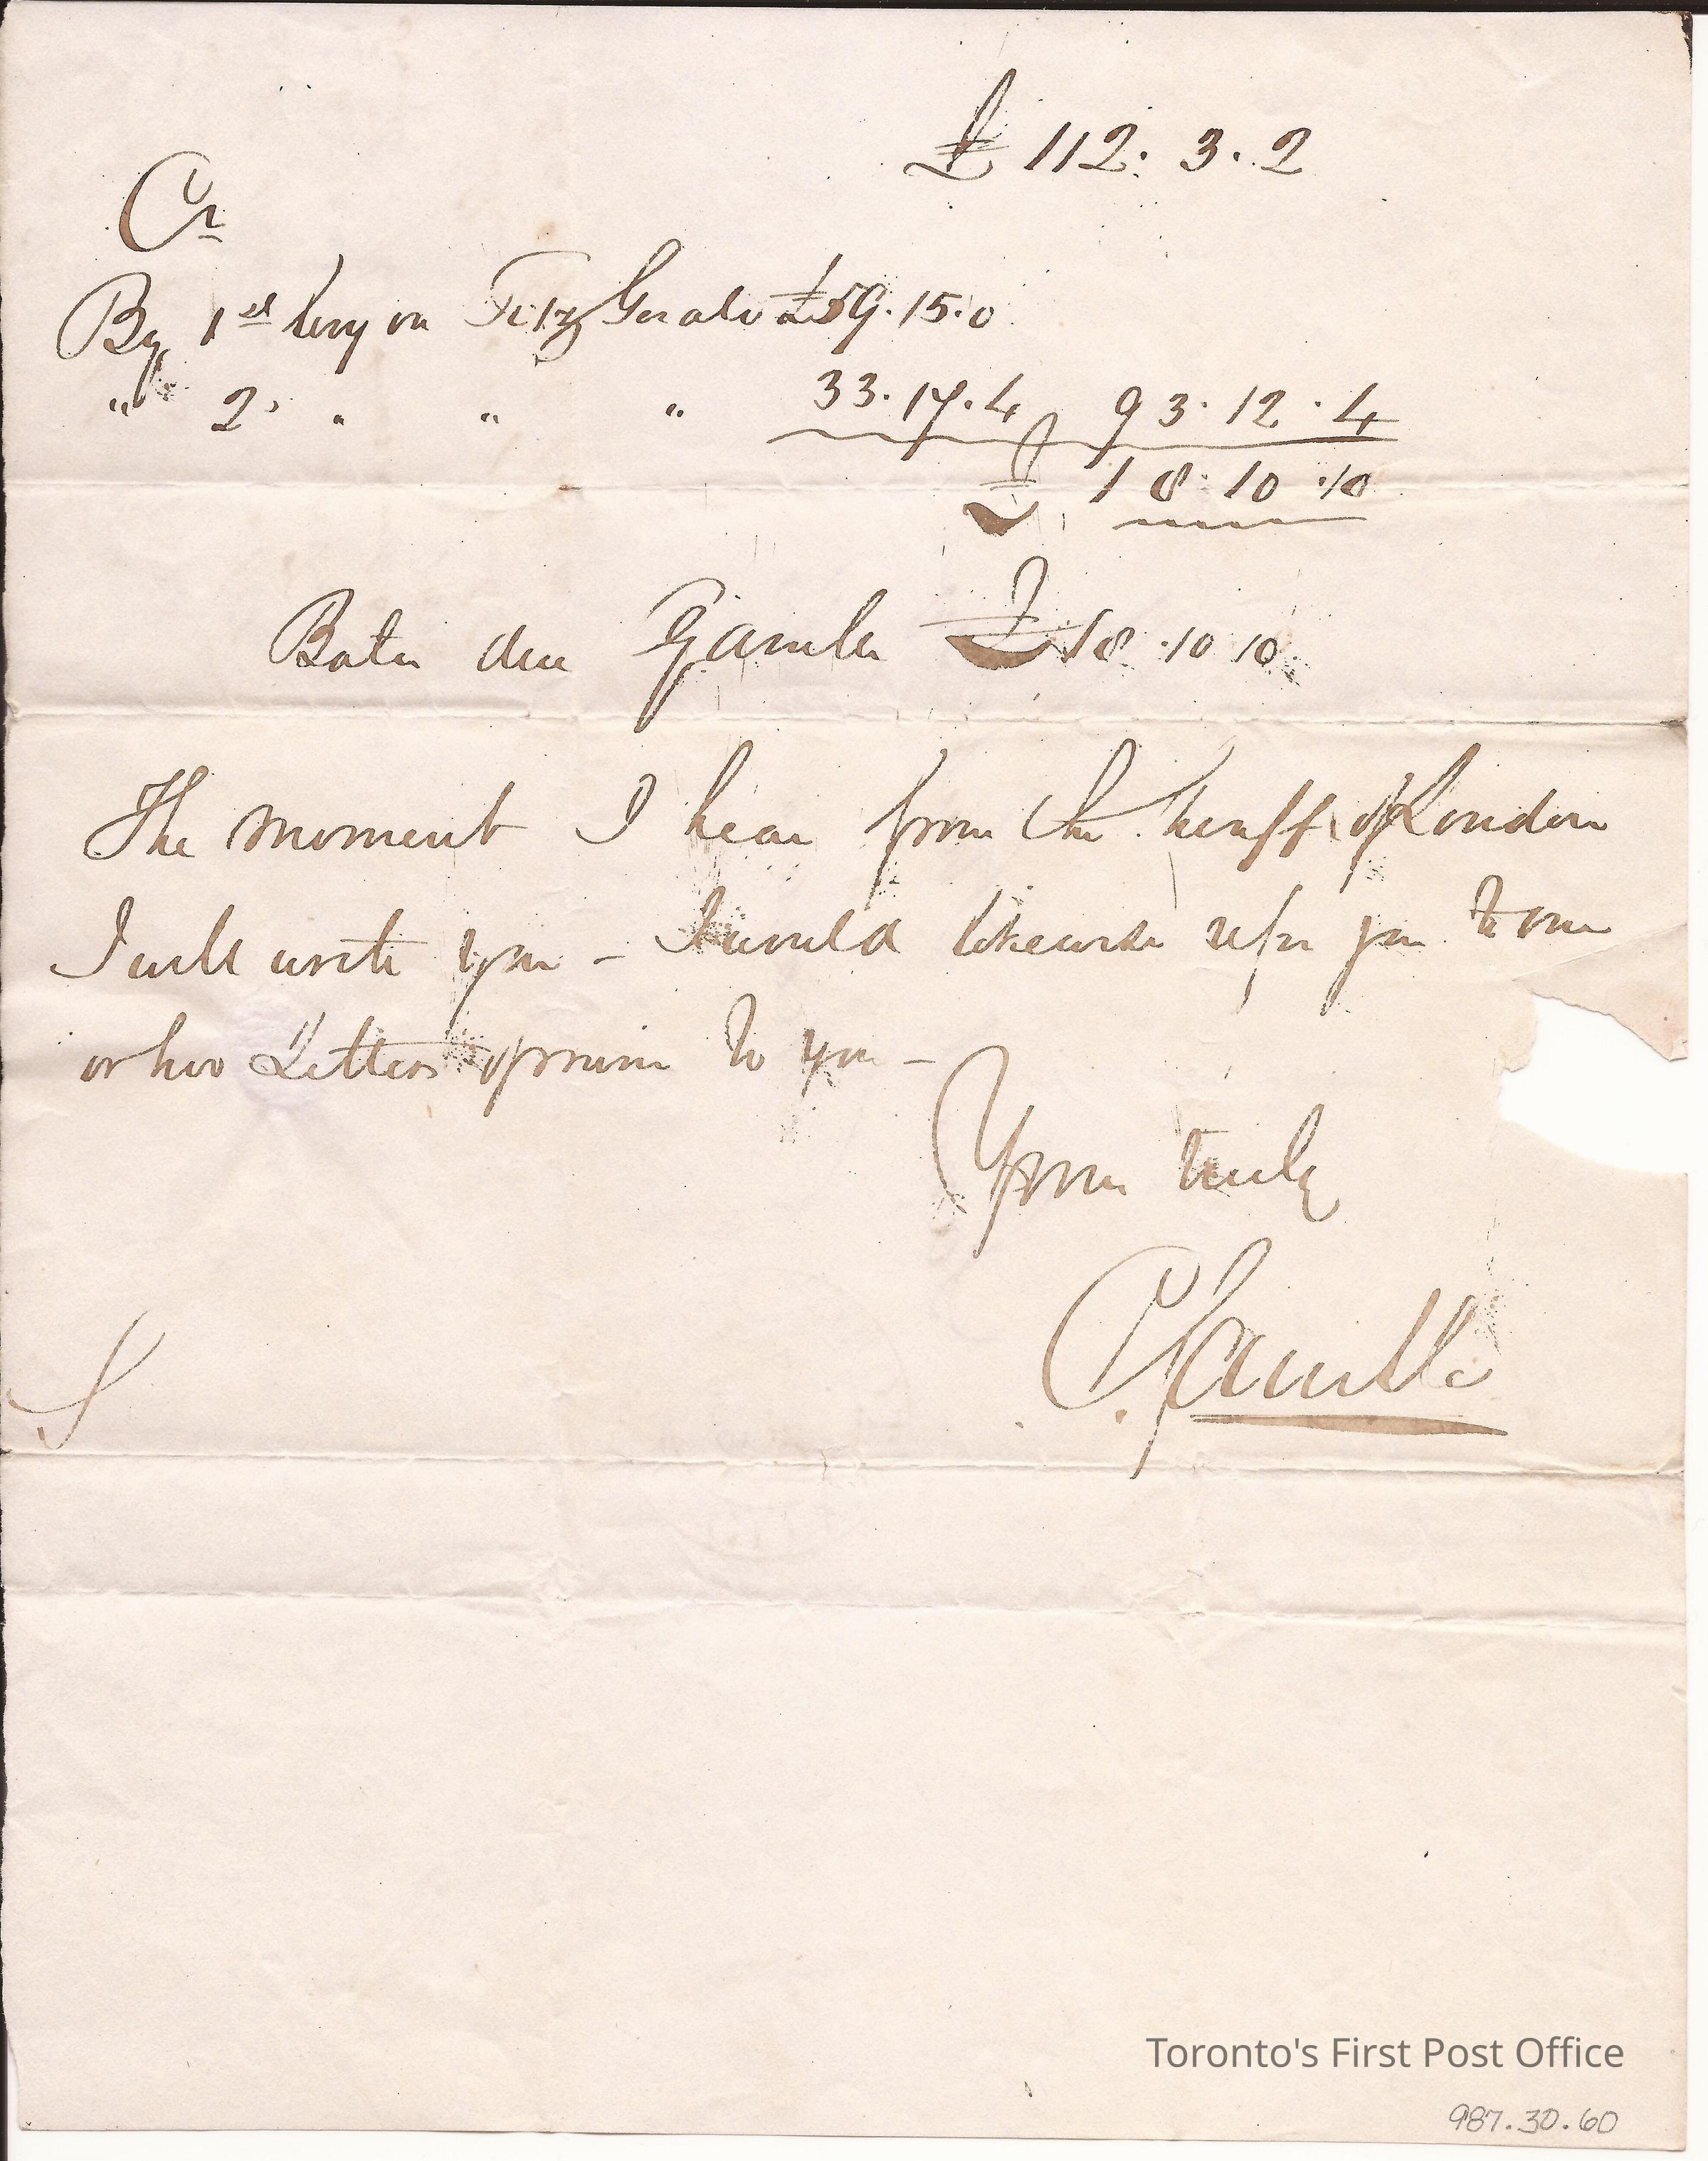 £ 112. 3. 2
Cr
By 1st levy on Fitz Gerald £59.15.0
" 2 " " " 33.17.4 93.12.4
£ 18.10.10
due Gamble £18.10 10
The moment I hear from the Sheriff of London
I will write you - I would likewise refer you to one
or two Letters of mine to you -
Yours truly
C Gamble
Toronto's First Post Office
987.30.60